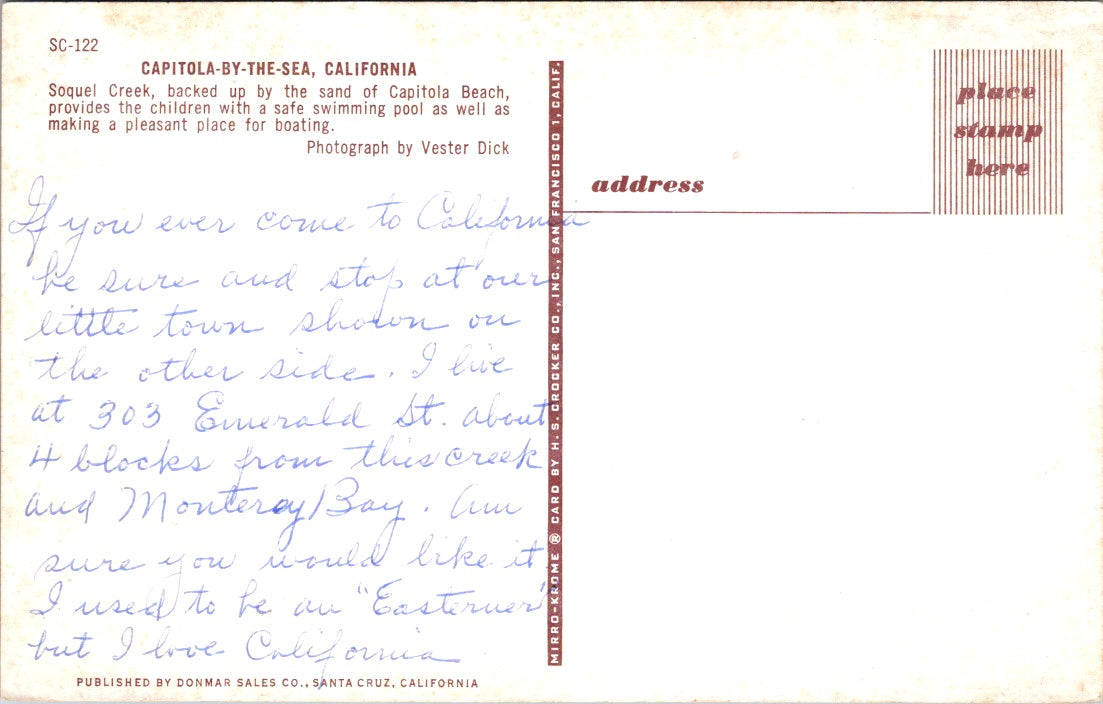 SC-122
CAPITOLA-BY-THE-SEA, CALIFORNIA
Soquel Creek, backed up by the sand of Capitola Beach,
provides the children with a safe swimming pool as well as
making a pleasant place for boating.
Photograph by Vester Dick
If you ever come to California
be sure and stop at our
little town shown on
the other side. I live
at 303 Emerald St. about
4 blocks from this creek
and Monterey Bay. Am
sure you would like it
I used to be an "Easterner"
but I love California
PUBLISHED BY DONMAR SALES CO., SANTA CRUZ, CALIFORNIA
MIRRO-KROME ® CARD BY H. S. CROCKER CO., INC., SAN FRANCISCO 1, CALIF.
address
place
stamp
here